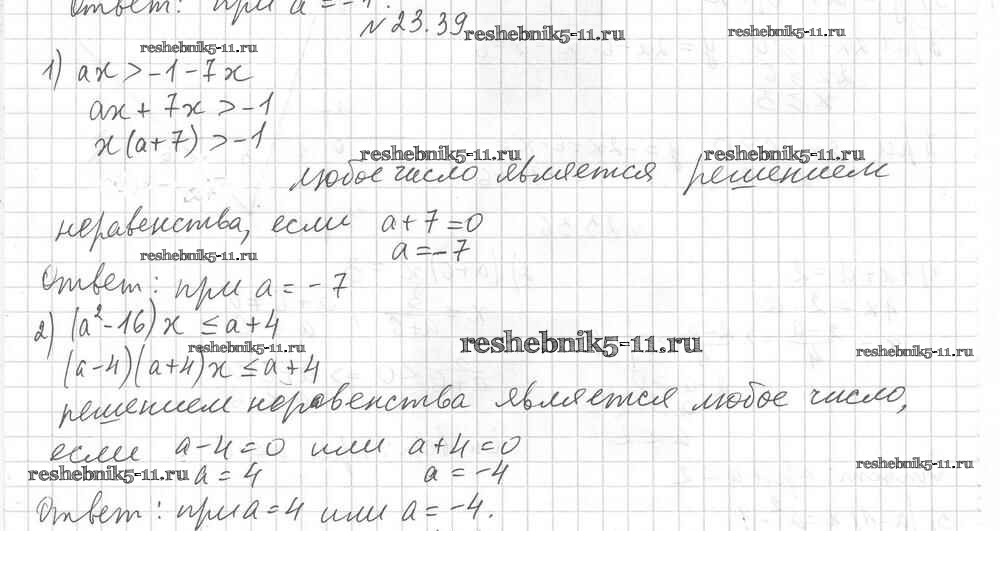 Ответ: при a = -1.
№23.39 reshebnik5-11.ru reshebnik5-11.ru
reshebnik5-11.ru
1) ax > -1 - 7x
ax + 7x > -1
x(a+7) > -1
reshebnik5-11.ru reshebnik5-11.ru
любое число является решением
неравенства, если a + 7 = 0
reshebnik5-11.ru a = -7
Ответ: при a = -7
2) (a²-16)x ≤ a+4
reshebnik5-11.ru reshebnik5-11.ru reshebnik5-11.ru
(a-4)(a+4)x ≤ a+4
решением неравенства является любое число,
если a-4=0 или a+4=0
reshebnik5-11.ru a = 4 a = -4 reshebnik5-11.ru
Ответ: при a=4 или a = -4.